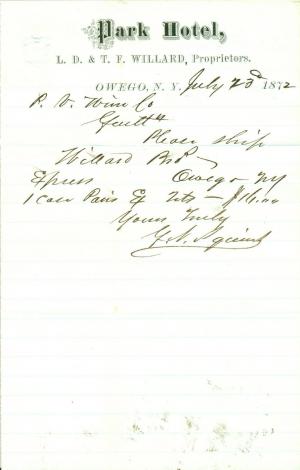 Park Hotel,
L. D. & T. F. WILLARD, Proprietors.
OWEGO, N. Y. July 23d 1872
P. V. Wine Co
Gentl
Please ship
Willard Bro
Express Owego NY
1 case Paris & Qts — $16.00
Yours Truly